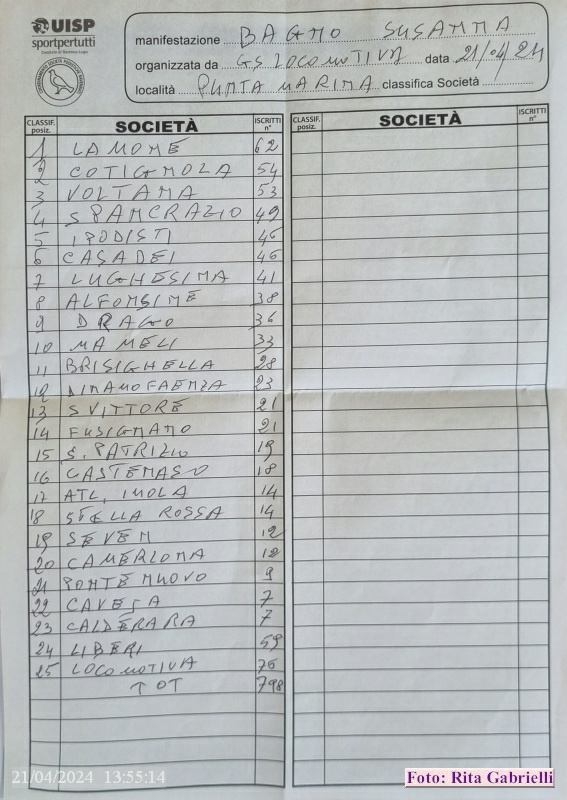 UISP
sportpertutti
Comitato di Ravenna-Lugo
manifestazione BAGNO SUSANNA
organizzata da GS LOCOMOTIVA data 21/04/24
località PUNTA MARINA classifica Società
CLASSIF. posiz. SOCIETÀ ISCRITTI n° CLASSIF. posiz. SOCIETÀ ISCRITTI n°
1 LAMONE 62
2 COTIGNOLA 54
3 VOLTANA 53
4 S PANCRAZIO 49
5 IPODISTI 46
6 CASADEI 46
7 LUGHESINA 41
8 ALFONSINE 38
9 DRAGO 36
10 MAMELI 33
11 BRISIGHELLA 28
12 DINAMO FAENZA 23
13 S VITTORE 21
14 FUSIGNANO 21
15 S. PATRIZIO 19
16 CASTENASO 18
17 ATL, IMOLA 14
18 STELLA ROSSA 14
19 SEVEN 12
20 CAMERLONA 12
21 PONTE NUOVO 9
22 CAVEJA 7
23 CALDERARA 7
24 LIBERI 59
25 LOCOMOTIVA 76
TOT 798
21/04/2024 13:55:14
Foto: Rita Gabrielli